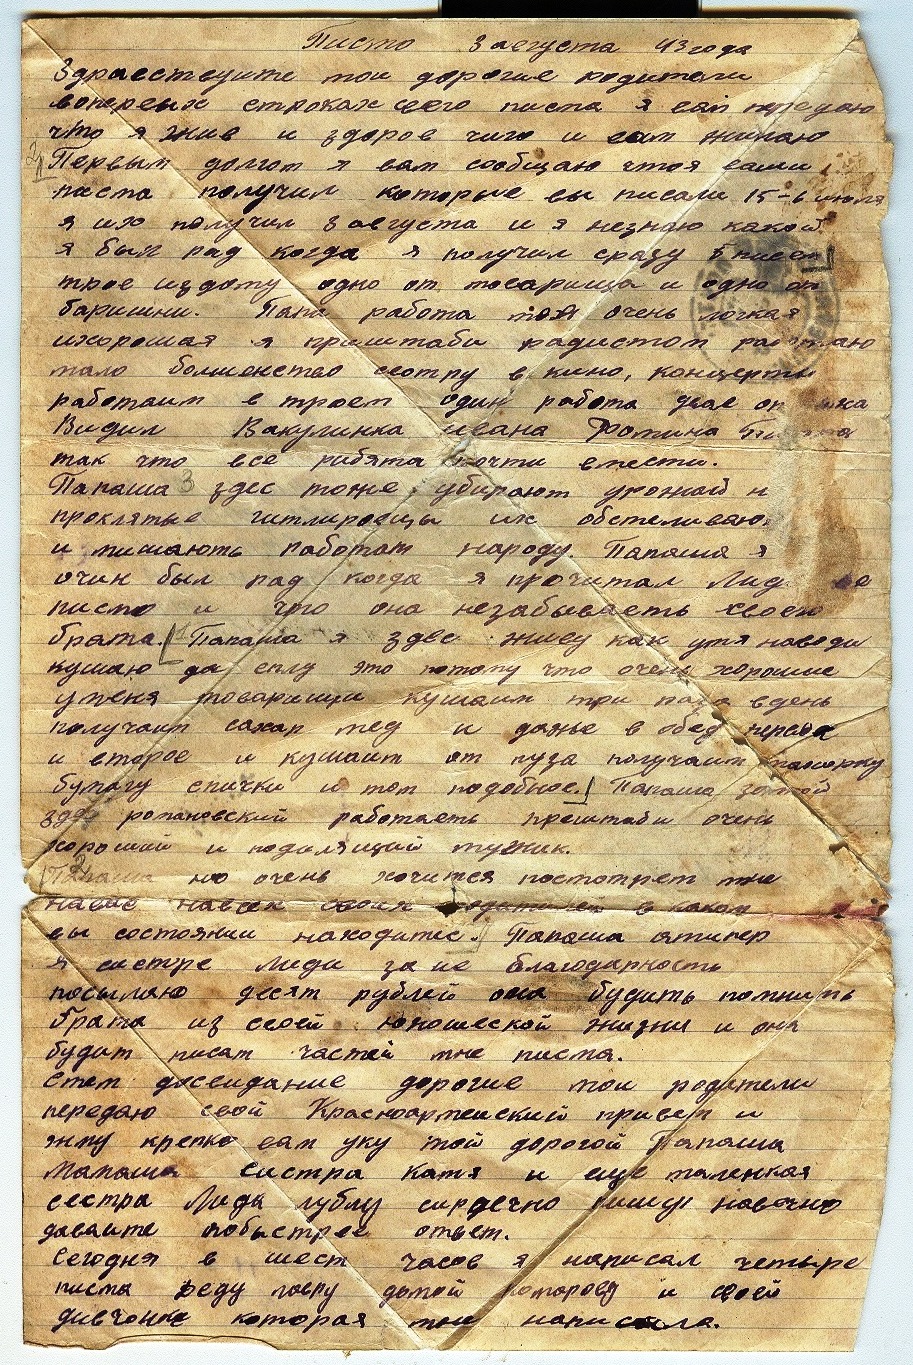 Писмо 3 августа 43 года
Здравствуите мои дорогие родители
вопервых строках своего писма я вам передаю
что я жив и здоров чиго и вам жилаю
Первым долгом я вам сообщаю чтоя ваши
писма получил которые вы писали 15-6 июля
я их получил 3 августа и я незнаю какой
я был рад когда я получил сразу 5 писем
трое издому одно от товарища и одно от
баришни. Папа работа моя очень лочкая
ихорошая я приштаби радистом работаю
мало болшенство смотру в кино, концерты
работаим в троем один работа двае от
Видил Вакулинка ивана Фомина
так что все рибята почти вмести.
Папаша здес тоже убирают урожай и
проклятые гитлировцы их обстеливаю
и мишають работат народу. Папаша я
очин был рад когда я прочитал Лид
писмо и что она незабываеть своего
брата. Папаша я здес живу как утя наводи
кушаю да сплу это потому что очень хорошие
уменя товарищи кушаим три раза вдень
получаим сахар мед и даже в обед перова
и второе и кушаит от пуза получаим махорку
бумагу спички и том подобное. Папаша замой
здес романовский работаеть прештаби очень
хороший и подилящий мужик.
Папаша но очень хочится посмотрет мне
навас навсех своих родителей в каком
вы состоянии находитис. Папаша атипер
я систре Лиди за ие благодарность
посылаю десят рублей она будить помнить
брата из своей юношеской жизни и она
будит писат частей мне писма.
Стем досвидание дорогие мои родители
передаю свой Красноармеиский привет и
жму крепко вам руку мой дорогой Папаша
Мамаша систра Катя и еще маленкая
сестра Лида лублу сирдечно пишу навочно
даваите побыстрее ответ.
Сегодня в шест часов я написал четыре
писма Феду лавру домой комарову и своей
дивчонке которая мне написала.